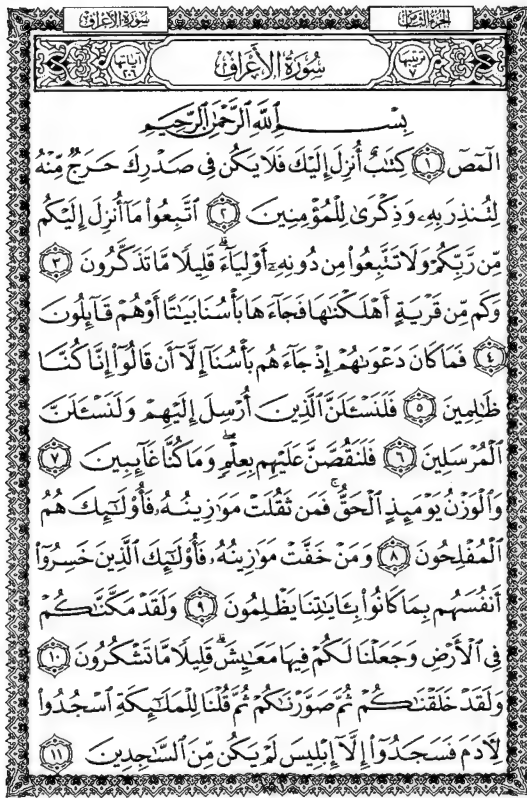 سُورَةُ الأَعْرَافِ
الجُزْءُ الثَّامِنُ
آيَاتُهَا ٢٠٦
سُورَةُ الأَعْرَافِ
تَرْتِيبُهَا ٧
بِسْمِ ٱللَّهِ ٱلرَّحْمَٰنِ ٱلرَّحِيمِ
الٓمٓصٓ ١ كِتَٰبٌ أُنزِلَ إِلَيْكَ فَلَا يَكُن فِى صَدْرِكَ حَرَجٌ مِّنْهُ
لِتُنذِرَ بِهِۦ وَذِكْرَىٰ لِلْمُؤْمِنِينَ ٢ ٱتَّبِعُوا۟ مَآ أُنزِلَ إِلَيْكُم
مِّن رَّبِّكُمْ وَلَا تَتَّبِعُوا۟ مِن دُونِهِۦٓ أَوْلِيَآءَ ۗ قَلِيلًا مَّا تَذَكَّرُونَ ٣
وَكَم مِّن قَرْيَةٍ أَهْلَكْنَٰهَا فَجَآءَهَا بَأْسُنَا بَيَٰتًا أَوْ هُمْ قَآئِلُونَ
٤ فَمَا كَانَ دَعْوَىٰهُمْ إِذْ جَآءَهُم بَأْسُنَآ إِلَّآ أَن قَالُوٓا۟ إِنَّا كُنَّا
ظَٰلِمِينَ ٥ فَلَنَسْـَٔلَنَّ ٱلَّذِينَ أُرْسِلَ إِلَيْهِمْ وَلَنَسْـَٔلَنَّ
ٱلْمُرْسَلِينَ ٦ فَلَنَقُصَّنَّ عَلَيْهِم بِعِلْمٍ ۖ وَمَا كُنَّا غَآئِبِينَ ٧
وَٱلْوَزْنُ يَوْمَئِذٍ ٱلْحَقُّ ۚ فَمَن ثَقُلَتْ مَوَٰزِينُهُۥ فَأُو۟لَٰٓئِكَ هُمُ
ٱلْمُفْلِحُونَ ٨ وَمَنْ خَفَّتْ مَوَٰزِينُهُۥ فَأُو۟لَٰٓئِكَ ٱلَّذِينَ خَسِرُوٓا۟
أَنفُسَهُم بِمَا كَانُوا۟ بِـَٔايَٰتِنَا يَظْلِمُونَ ٩ وَلَقَدْ مَكَّنَّٰكُمْ
فِى ٱلْأَرْضِ وَجَعَلْنَا لَكُمْ فِيهَا مَعَٰيِشَ ۗ قَلِيلًا مَّا تَشْكُرُونَ ١٠
وَلَقَدْ خَلَقْنَٰكُمْ ثُمَّ صَوَّرْنَٰكُمْ ثُمَّ قُلْنَا لِلْمَلَٰٓئِكَةِ ٱسْجُدُوا۟
لِـَٔادَمَ فَسَجَدُوٓا۟ إِلَّآ إِبْلِيسَ لَمْ يَكُن مِّنَ ٱلسَّٰجِدِينَ ١١